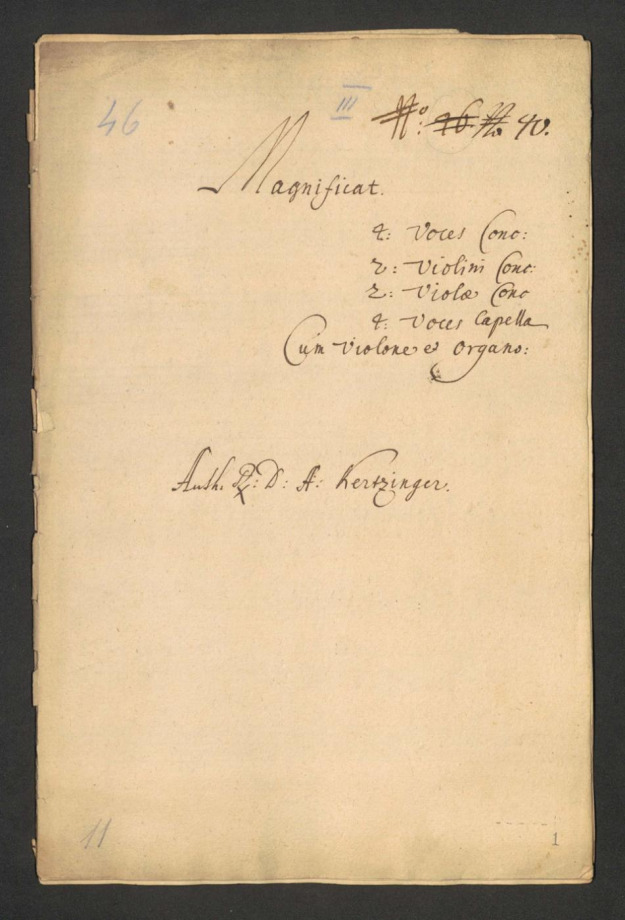 46
III
No: 26 No 40.
Magnificat.
4: Voces Conc:
2: Violini Conc:
2: Violæ Conc
4: Voces Capella
Cum Violone et Organo:
Auth. R: D: A: Kertzinger.
11
1